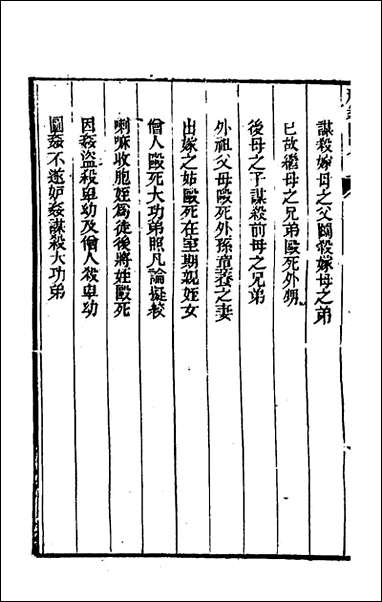 謀殺嫁母之父鬬殺嫁母之弟
已故繼母之兄弟毆死外甥
後母之子謀殺前母之兄弟
外祖父母毆死外孫童養之妻
出嫁之姑毆死在室期親姪女
僧人毆死大功弟照凡論擬絞
喇嘛收胞姪爲徒後將姪毆死
因姦盜殺卑幼及僧人殺卑幼
圖姦不遂妒姦謀殺大功弟